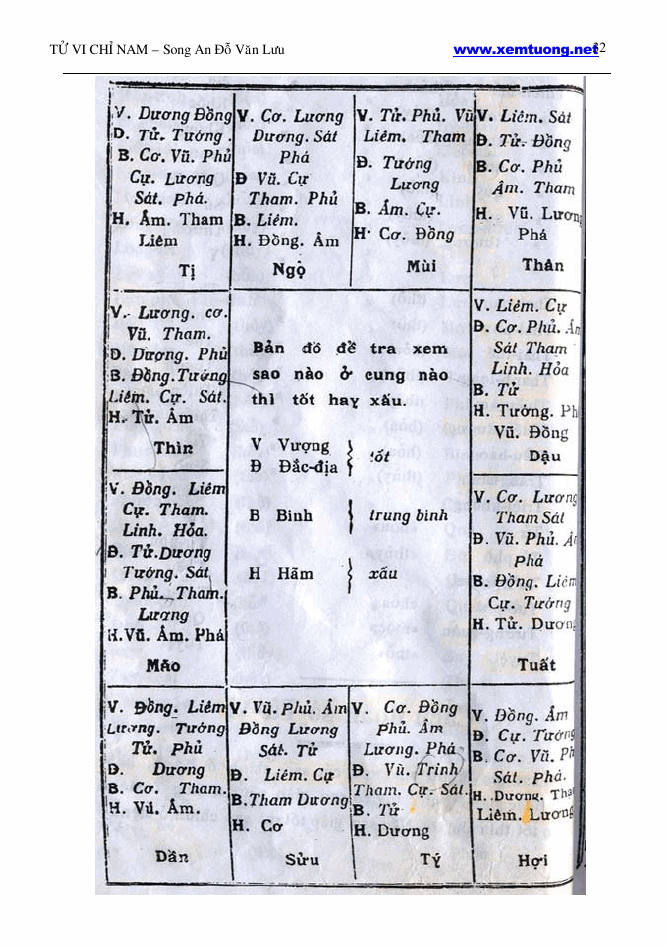 TỬ VI CHỈ NAM – Song An Đỗ Văn Lưu
www.xemtuong.net
V. Dương Đồng
D. Tử. Tướng.
B. Cơ. Vũ. Phủ
Cự. Lương
Sát. Phá.
H. Âm. Tham
Liêm
Tị
V. Cơ. Lương
Dương. Sát
Phá
Đ Vũ. Cự
Tham. Phủ
B. Liêm.
H. Đồng. Âm
Ngọ
V. Tử. Phủ. Vũ
Liêm. Tham
Đ. Tướng
Lương
B. Âm. Cự.
H. Cơ. Đồng
Mùi
V. Liêm. Sát
Đ. Tử. Đồng
B. Cơ. Phủ
Âm. Tham
H. Vũ. Lương
Phá
Thân
V. Lương. cơ.
Vũ. Tham.
D. Dương. Phủ
B. Đồng. Tướng
Liêm. Cự. Sát.
H. Tử. Âm
Thìn
Bản đồ để tra xem
sao nào ở cung nào
thì tốt hay xấu.
V Vượng
Đ Đắc-địa
tốt
B Bình
trung bình
H Hãm
xấu
V. Liêm. Cự
Đ. Cơ. Phủ.
Sát Tham
Linh. Hỏa
B. Tử
H. Tướng.
Vũ. Đồng
Dậu
V. Đồng. Liêm
Cự. Tham.
Linh. Hỏa.
Đ. Tử. Dương
Tướng. Sát
B. Phủ. Tham.
Lương
H. Vũ. Âm. Phá
Mão
V. Cơ. Lương
Tham Sát
Đ. Vũ. Phủ.
Phá
B. Đồng. Liêm
Cự. Tướng
H. Tử. Dương
Tuất
V. Đồng. Liêm
Lương. Tướng
Tử. Phủ
Đ. Dương
B. Cơ. Tham.
H. Vũ. Âm.
Dần
V. Vũ. Phủ. Âm
Đồng Lương
Sát. Tử
Đ. Liêm. Cự
B. Tham Dương
H. Cơ
Sửu
V. Cơ. Đồng
Phủ. Âm
Lương. Phá
Đ. Vũ. Trinh
Tham. Cự. Sát.
B. Tử
H. Dương
Tý
V. Đồng. Âm
Đ. Cự. Tướng
B. Cơ. Vũ.
Sát. Phá.
H. Dương.
Liêm. Lương
Hợi